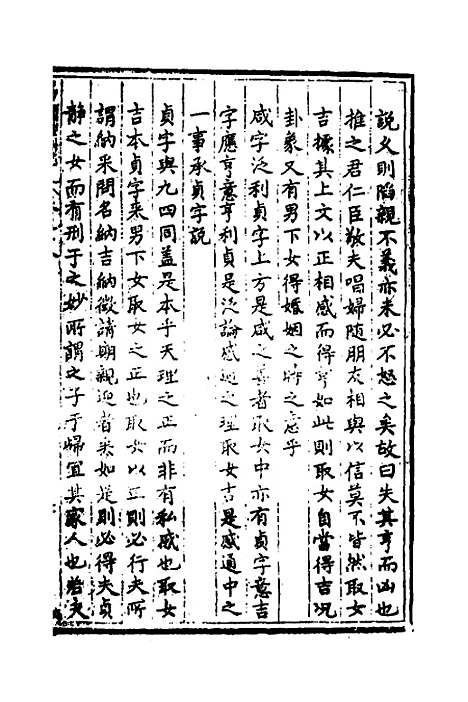 説义則陷親不義亦未必不怒之矣故曰失其亨而凶也
推之君仁臣敬夫唱婦随朋友相與以信莫不皆然取女
吉據其上文以正相感而得亨如此則取女自當得吉况
卦象又有男下女得婚姻之時之意乎
咸字泛利貞字上方是感之善者取女中亦有貞字意吉
字應亨意亨利貞是泛論感通之理取女吉是感通中之
一事承貞字説
貞字與九四同盖是本乎天理之正而非有私感也取女
吉本貞字来男下女取女之正也取女以正則必行夫所
謂納采問名納吉納徵請期親迎者矣如是則必得夫貞
静之女而有刑于之妙所謂之子于歸宜其家人也若夫